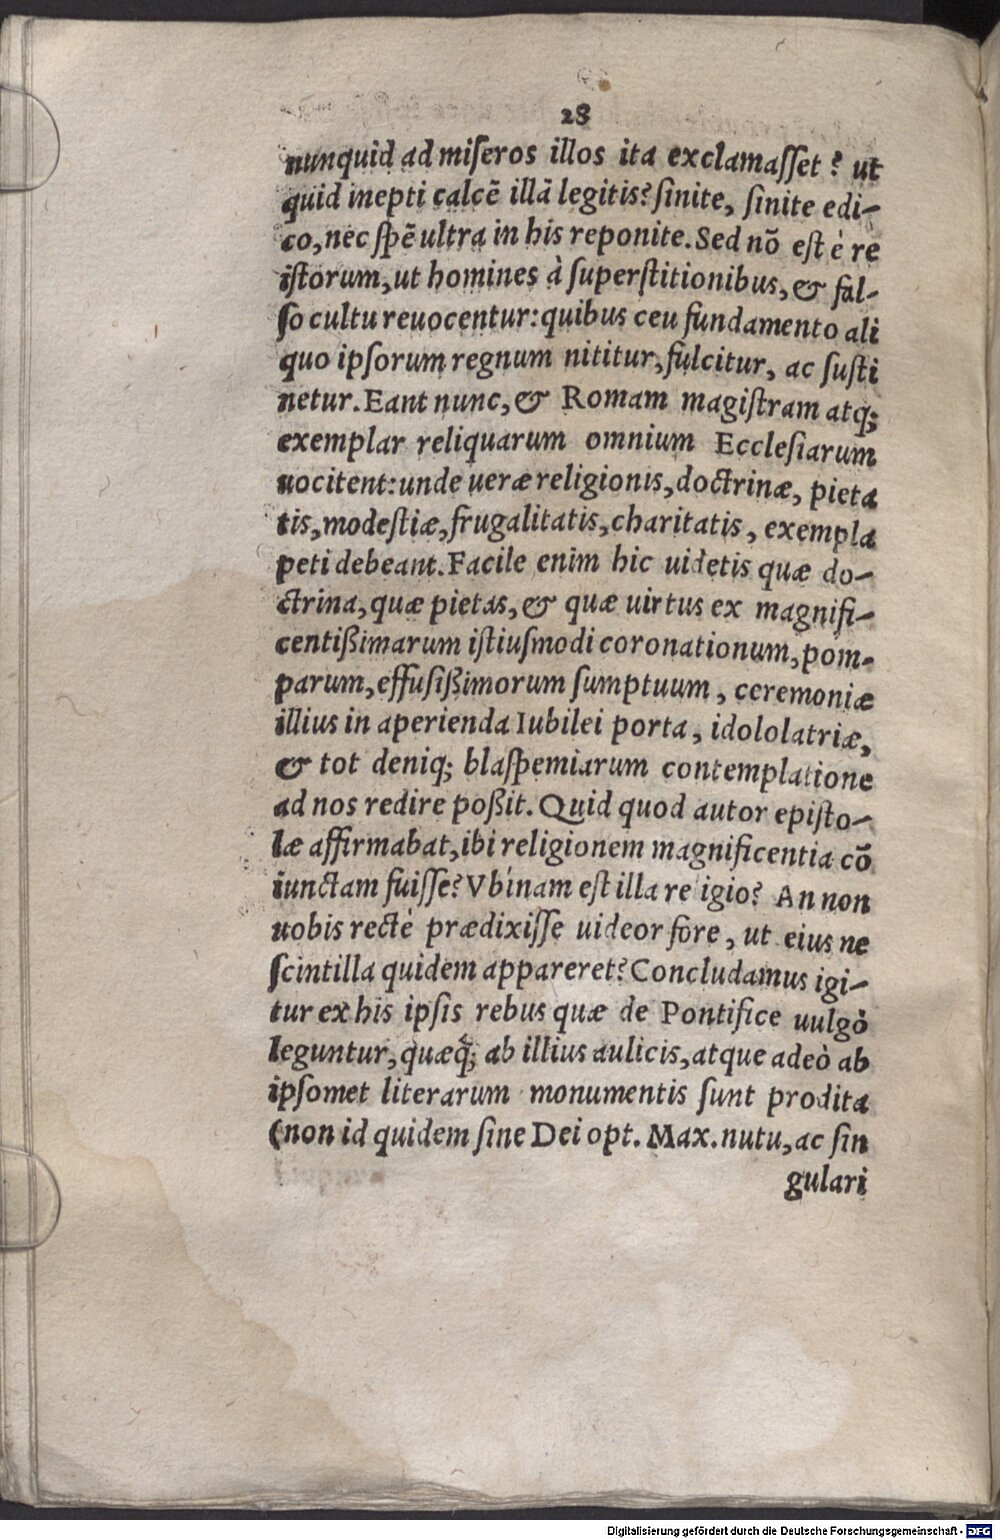 28
nunquid ad miſeros illos ita exclamaſſet? ut
quid inepti calcē illā legitis? ſinite, ſinite edi-
co, nec ſpē ultra in his reponite. Sed nō eſt è re
iſtorum, ut homines à ſuperſtitionibus, & fal-
ſo cultu reuocentur: quibus ceu fundamento ali
quo ipſorum regnum nititur, fulcitur, ac ſuſti
netur. Eant nunc, & Romam magiſtram atq;
exemplar reliquarum omnium Eccleſiarum
uocitent: unde ueræ religionis, doctrinæ, pieta
tis, modeſtiæ, frugalitatis, charitatis, exempla
peti debeant. Facile enim hic uidetis quæ do-
ctrina, quæ pietas, & quæ uirtus ex magnifi-
centißimarum iſtiuſmodi coronationum, pom-
parum, effuſißimorum ſumptuum, ceremoniæ
illius in aperienda Iubilei porta, idololatriæ,
& tot deniq; blaſpemiarum contemplatione
ad nos redire poßit. Quid quod autor epiſto-
læ affirmabat, ibi religionem magnificentia cō
iunctam fuiſſe? Vbínam eſt illa re igio? An non
uobis rectè prædixiſſe uideor fore, ut eius ne
ſcintilla quidem appareret? Concludamus igi-
tur ex his ipſis rebus quæ de Pontifice uulgò
leguntur, quæq́; ab illius aulicis, atque adeò ab
ipſomet literarum monumentis ſunt prodita
(non id quidem ſine Dei opt. Max. nutu, ac ſin
gulari
Digitalisierung gefördert durch die Deutsche Forschungsgemeinschaft - DFG